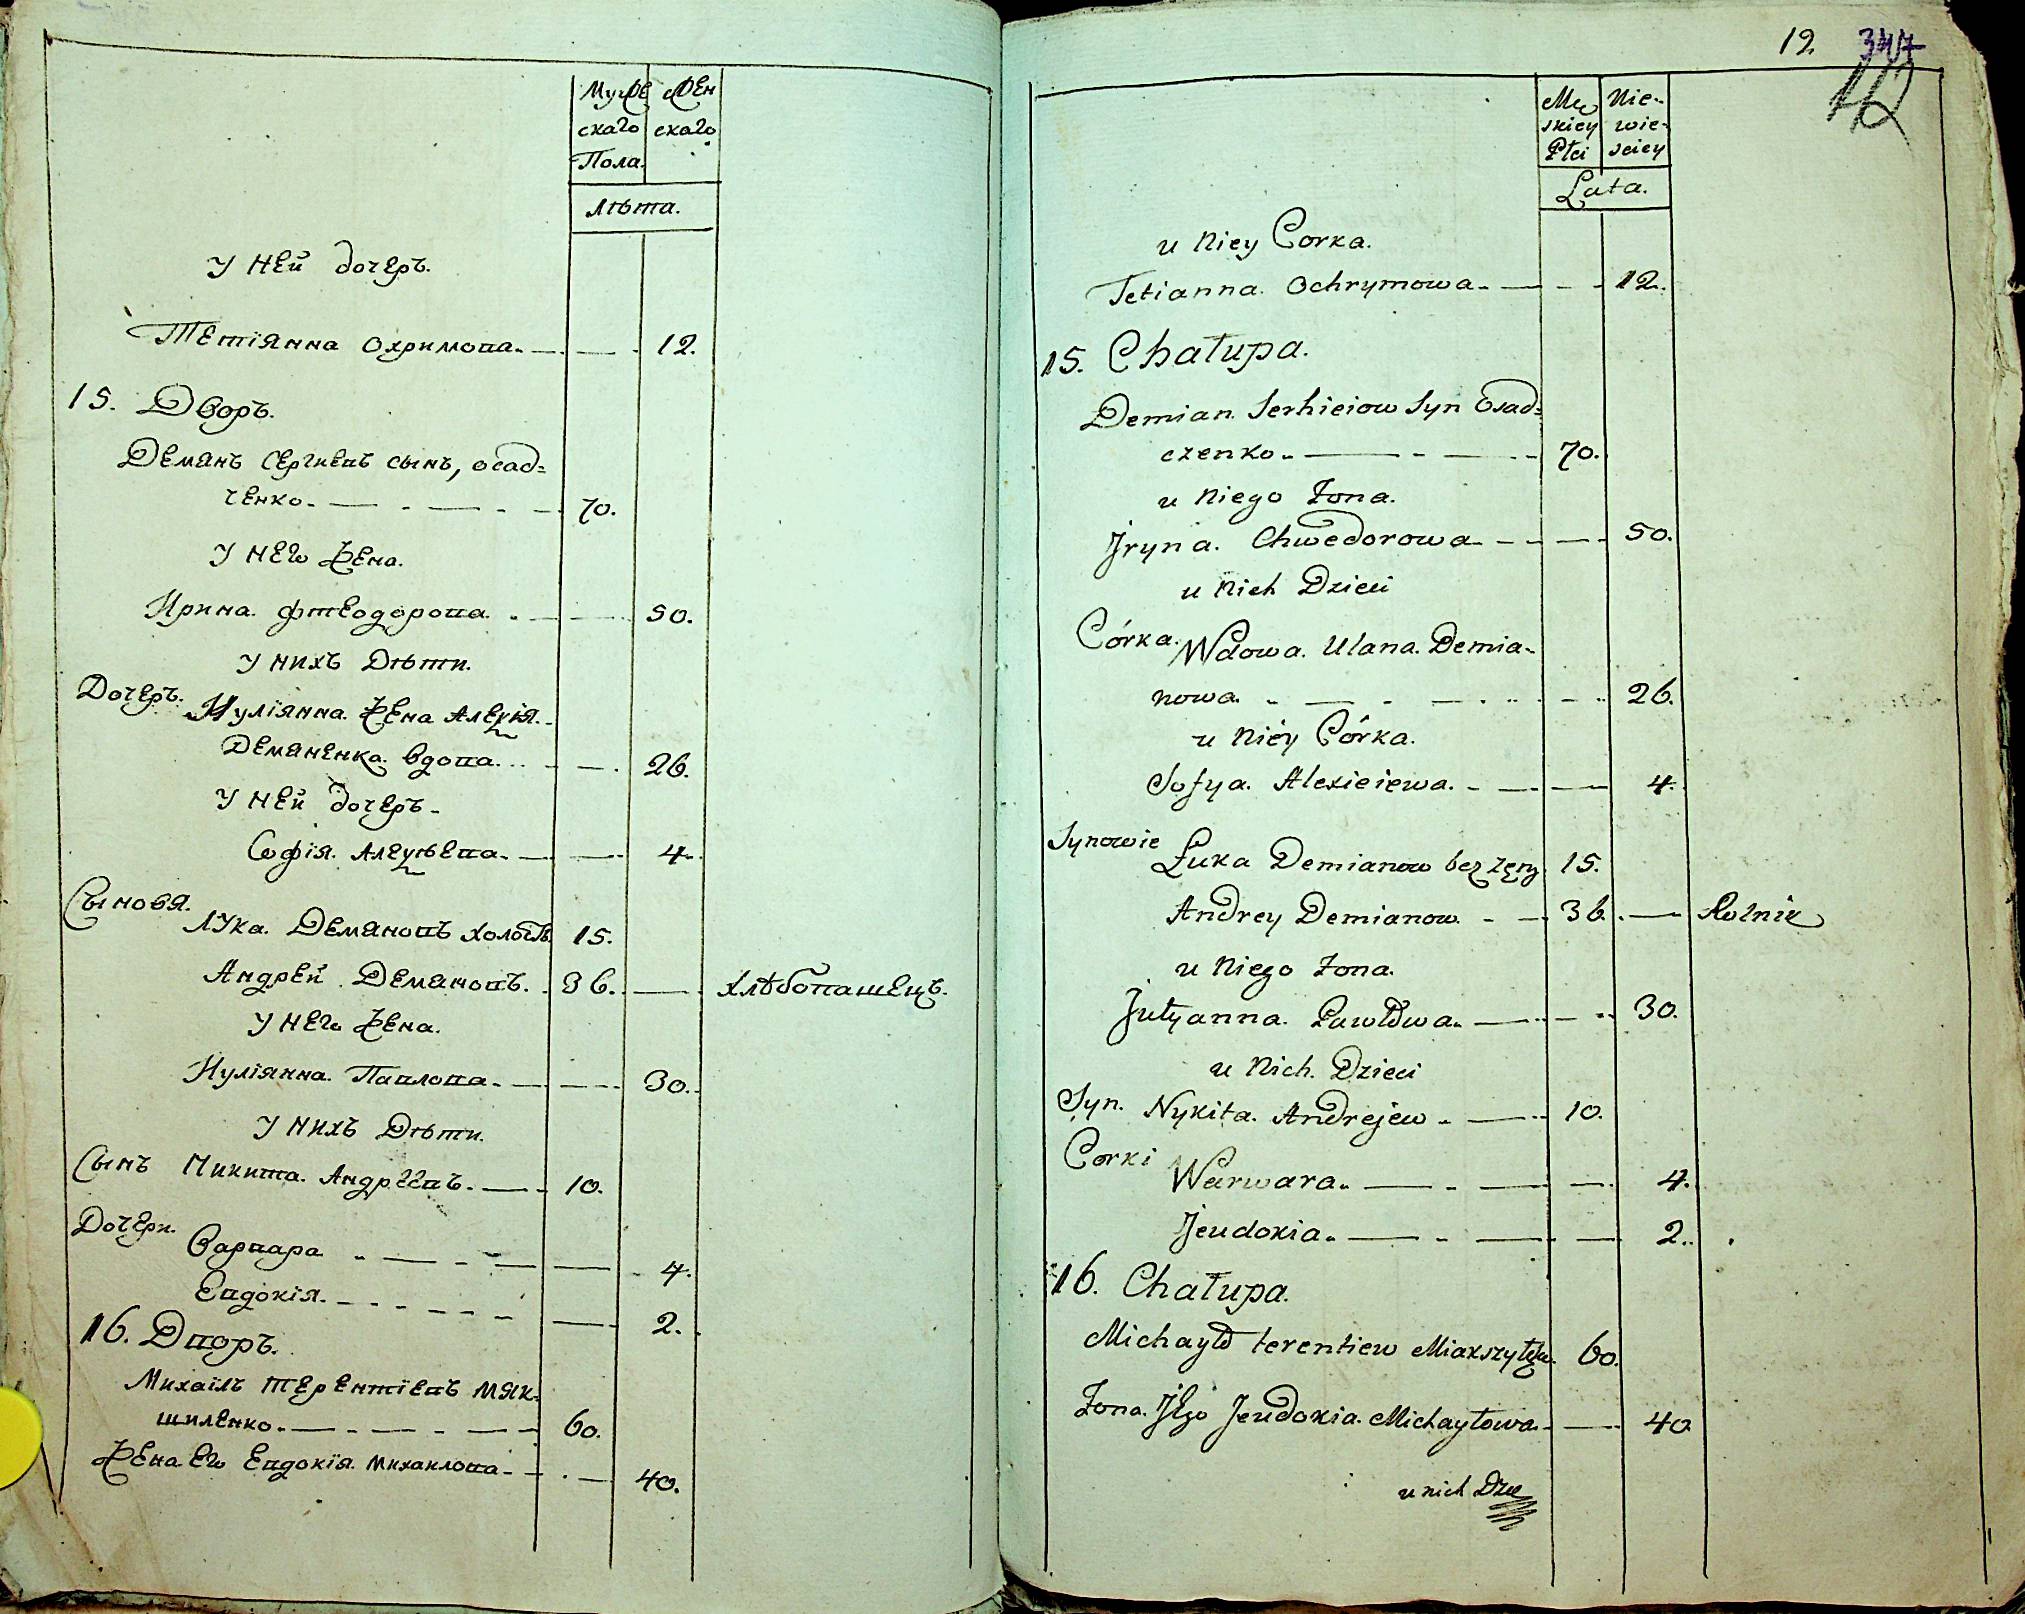 Мужескаго Пола.
Женскаго
лѣта.
У Ней дочеръ.
Тетіянна Охримова. 12.
15. Дворъ.
Деманъ Сергиевъ сынъ, осад=
ченко. 70.
У Него Жена.
Ирина. Фтеодорова. 50.
У нихъ Дѣти.
Дочеръ.
Иуліянна. Жена Алексія.
Деманенка. вдова... 26.
У Ней дочеръ.
Софія. Алеѯѣева. 4.
Сыновя.
Лука. Демановъ холостъ 15.
Андрей. Демановъ. 36. Хлѣбопашецъ.
У Него Жена.
Иуліянна. Павлова. 30.
У нихъ Дѣти.
Сынъ Никита. Андреевъ. 10.
Дочери.
Варвара 4.
Евдокія. 2.
16. Дворъ.
Михаілъ Терентіевъ Мяк-
шиленко. 60.
Жена Его Евдокія. Михаилова. 40.
12 347
12
Męskiey Płci
Niewieściey
Lata.
u Niey Corka.
Tetianna. Ochrymowa. 12.
15. Chałupa.
Demian. Serhieiow Syn Osad=
czenko. 70.
u Niego Żona.
Jryna. Chwedorowa 50.
u Nich Dzieci
Córka. Wdowa. Ulana. Demia-
nowa. 26.
u Niéy Córka.
Sofya. Alexieiewa. 4.
Synowie
Łuka Demianow bez żęny 15.
Andrey Demianow. 36. Rolnik
u Niego Żona.
Jułyanna. Pawłowa. 30.
u Nich. Dzieci
Syn. Nykita. Andrejew. 10.
Corki
Warwara. 4.
Jeudokia. 2.
16. Chałupa.
Michayło terentiew 60.
Żona. Jego Jeudokia. Michayłowa. 40
u nich Dzie